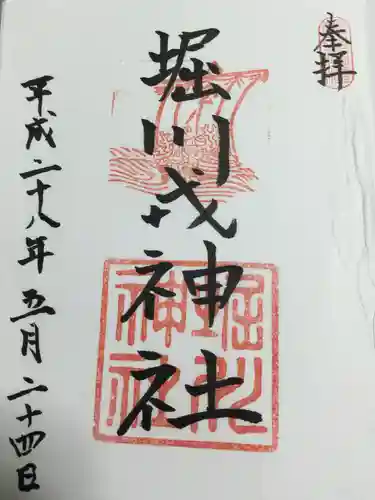 奉拝
堀川戎神社
平成二十八年五月二十四日